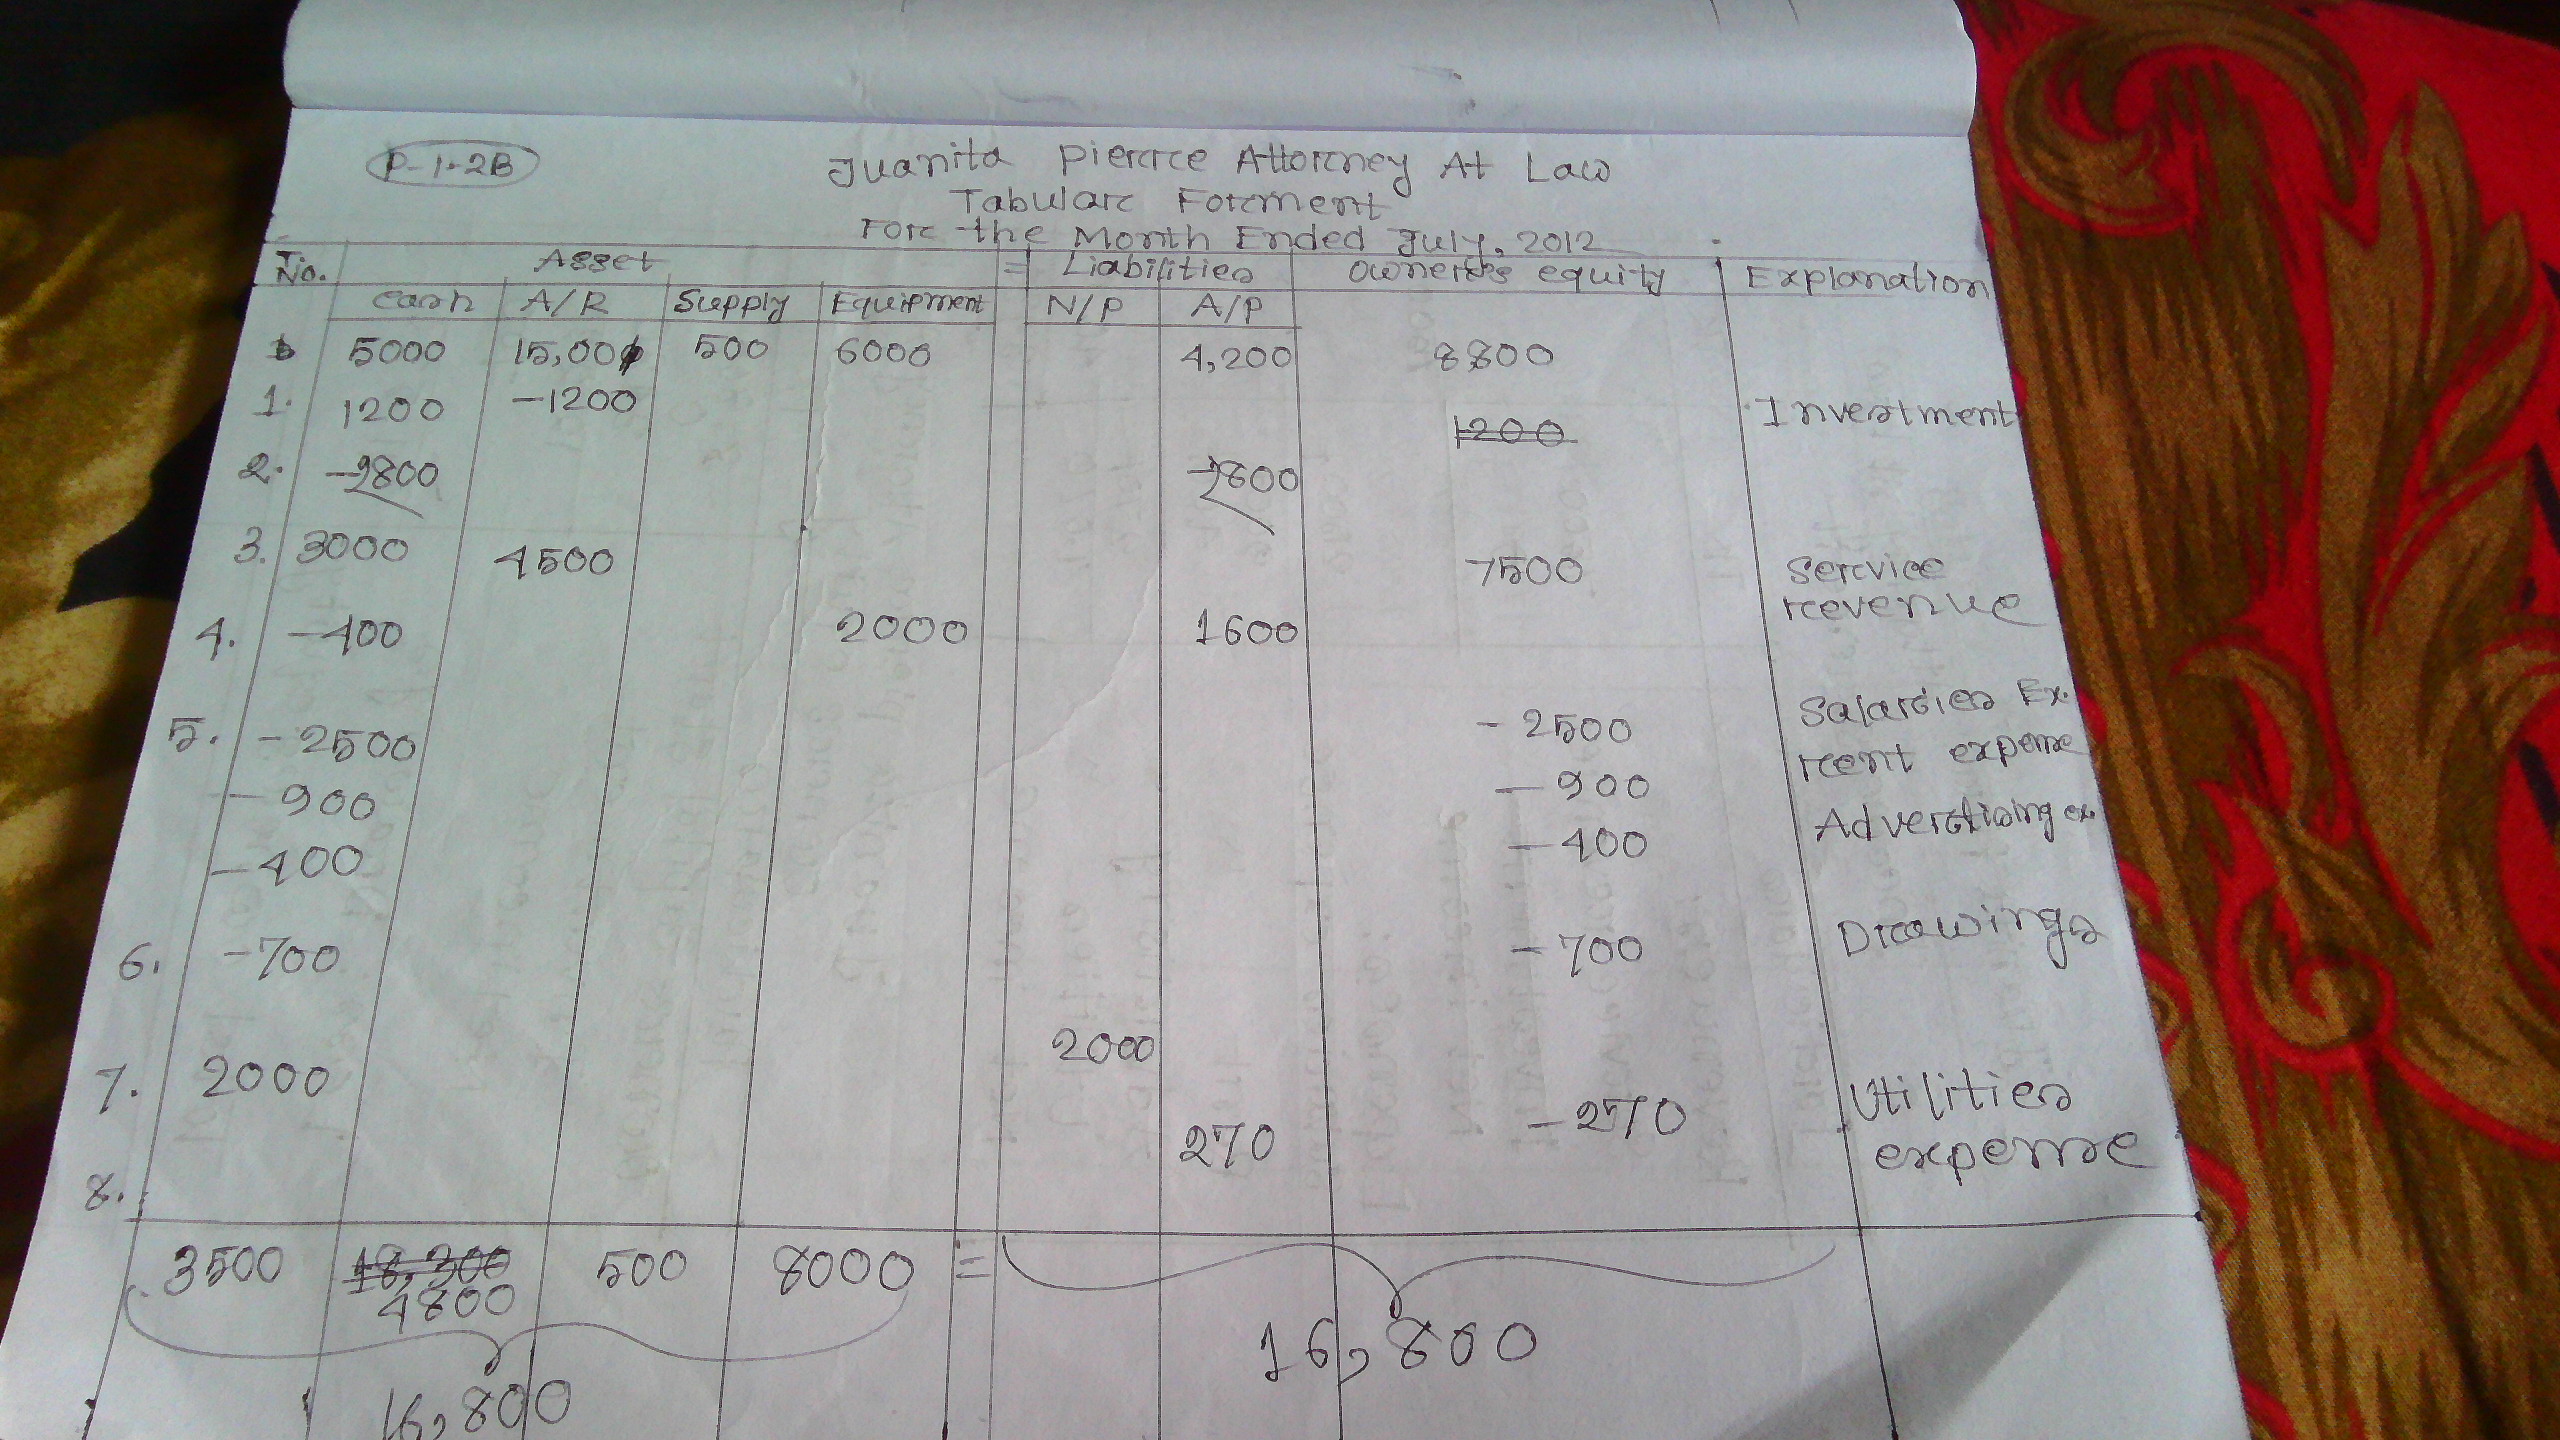 P-1-2B
Juanita Pierce Attorney At Law
Tabular Forment
For the Month Ended July, 2012
T. No. Asset = Liabilities owner's equity Explanation
Cash A/R Supply Equipment N/P A/P
5000 15,00 500 6000 4,200 8800
1. 1200 -1200 1200 Investment
2. -2800 -2800
3. 3000 4500 7500 Service
revenue
4. -400 2000 1600
5. -2500 -2500 Salaries Ex.
-900 -900 rent expense
-400 -400 Advertising ex.
6. -700 -700 Drawings
7. 2000 2000
8. 270 -270 Utilities
expense
3500 18,300 500 8000 =
4800
16,800 16,800